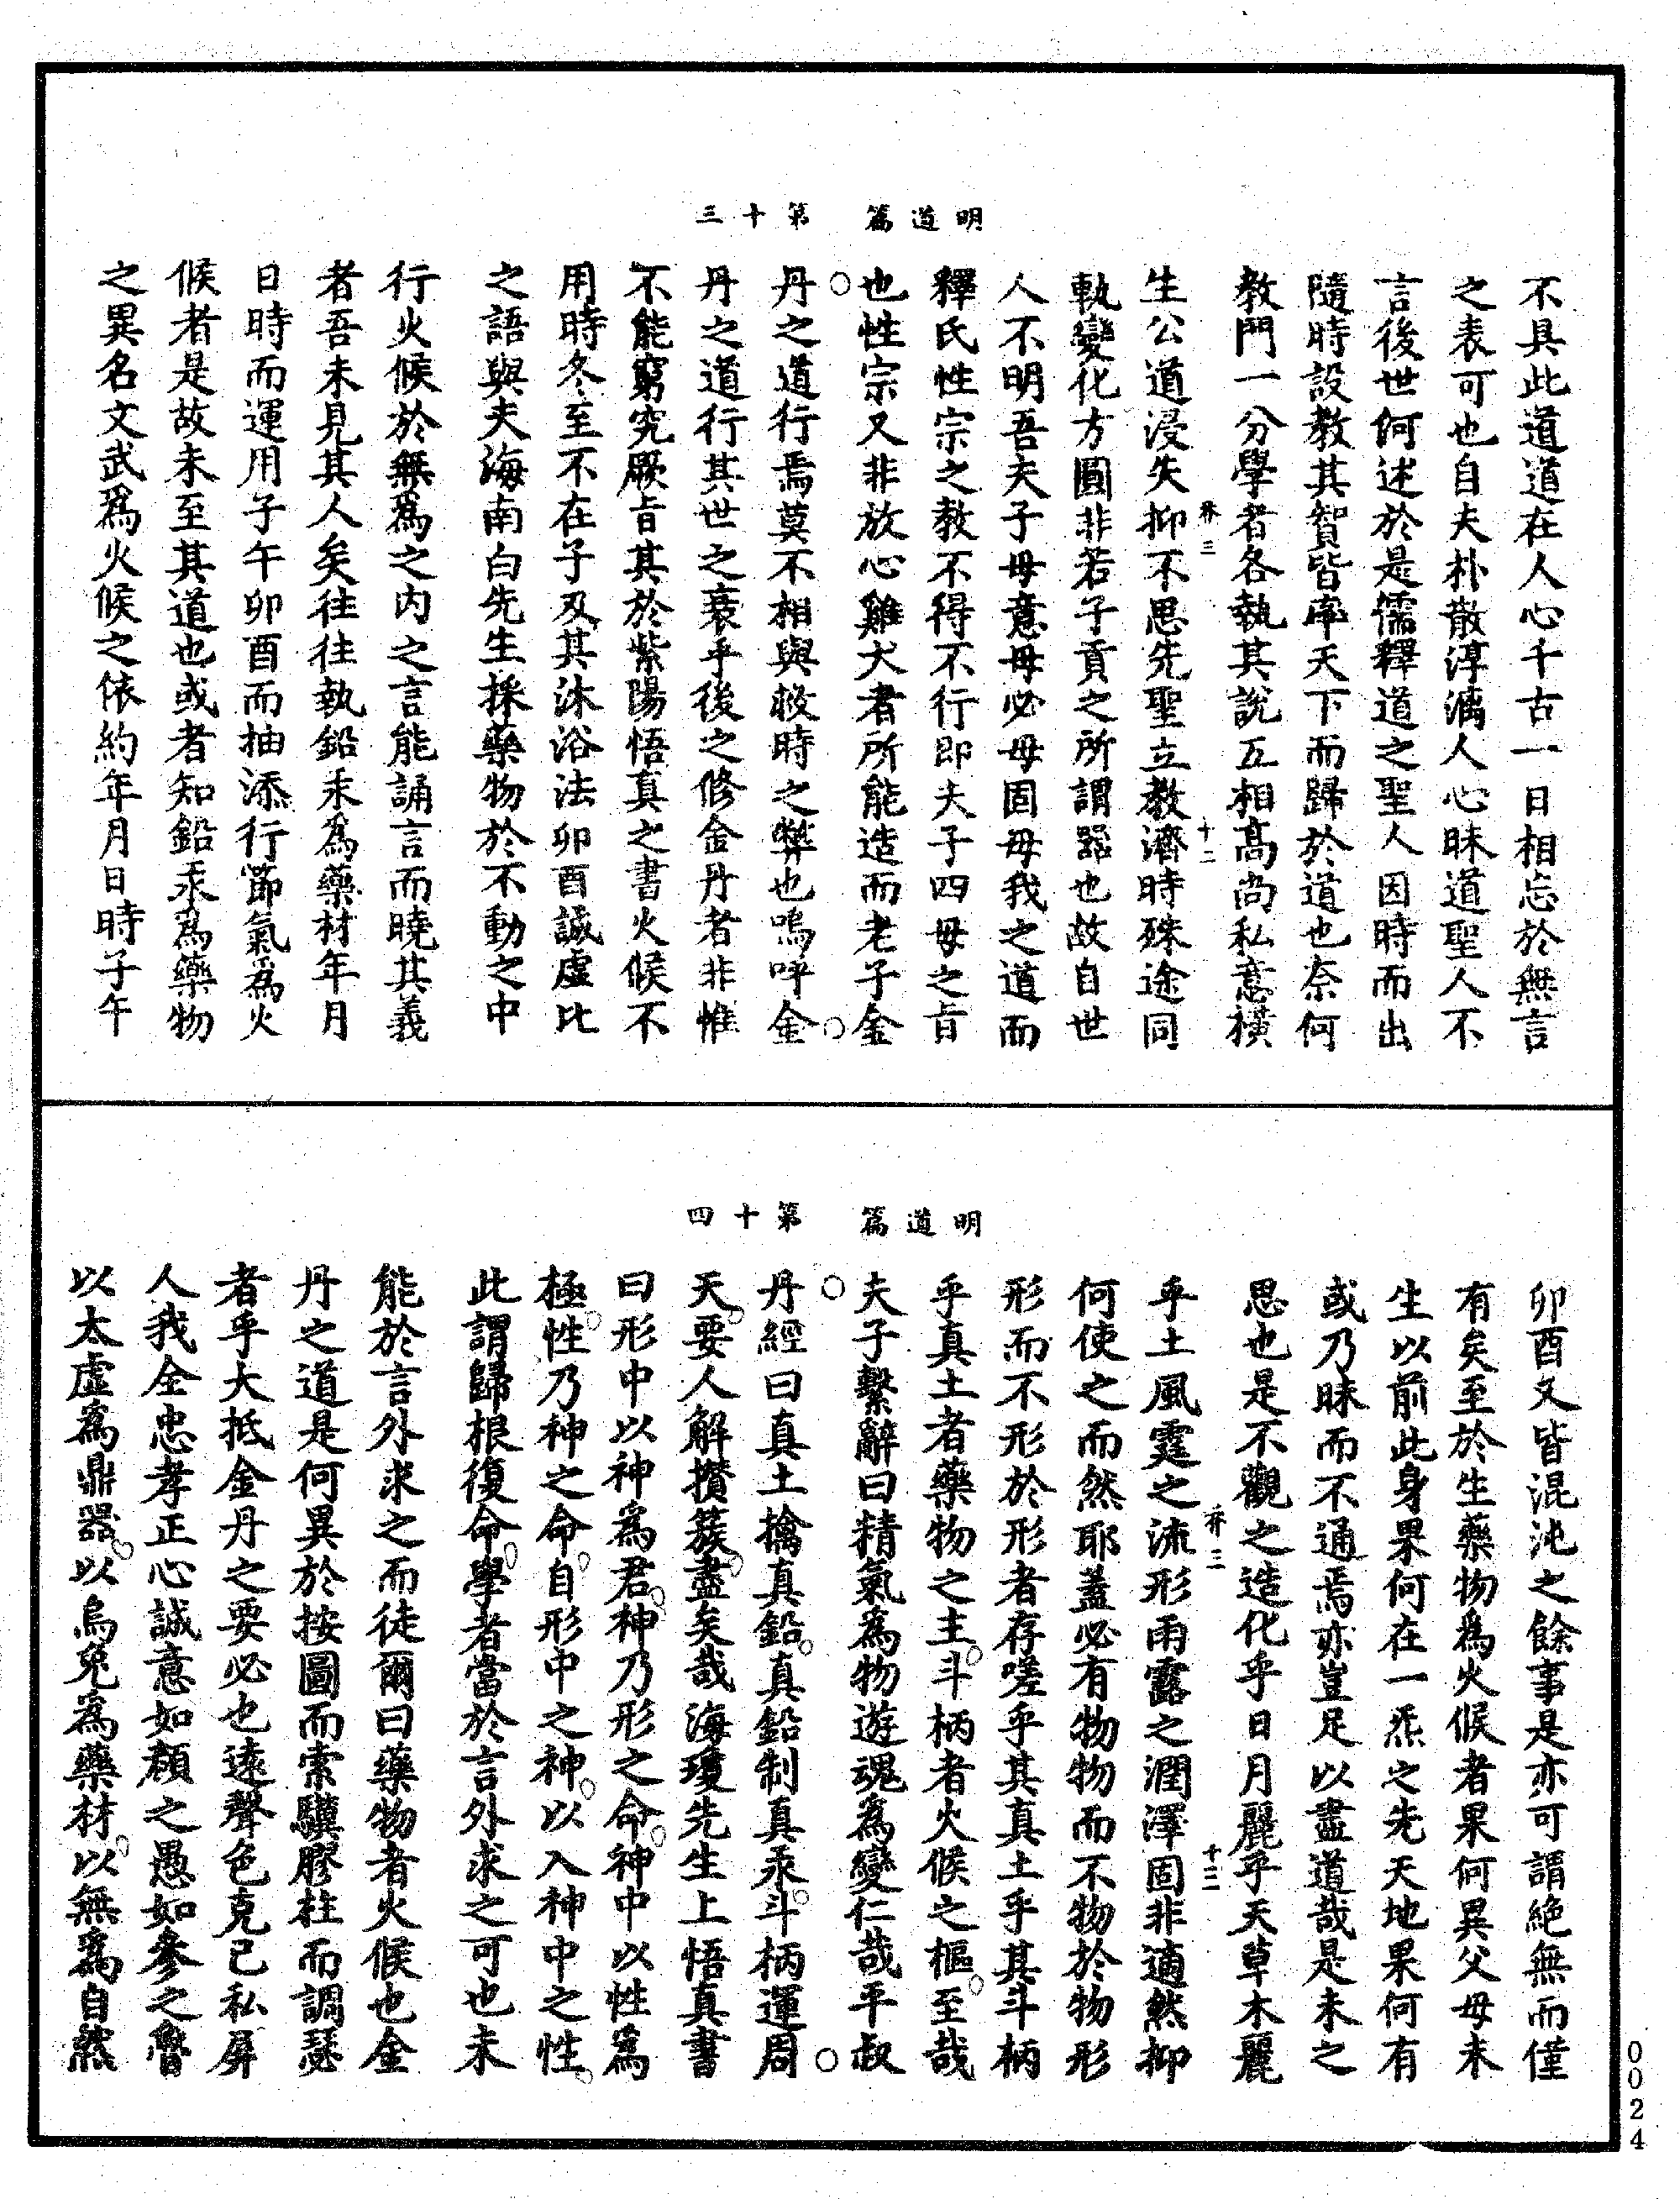 明道篇　第十三
不具此道道在人心千古一日相忘於無言
之表可也自夫朴散淳漓人心昧道聖人不
言後世何述於是儒釋道之聖人因時而出
隨時設教其實皆率天下而歸於道也奈何
教門一分學者各執其說互相高尚私意橫
芥三　十二
生公道浸失抑不思先聖立教濟時殊途同
軌變化方圓非若子貢之所謂器也故自世
人不明吾夫子毋意毋必毋固毋我之道而
釋氏性宗之教不得不行即夫子四毋之旨
也性宗又非放心雞犬者所能造而老子金
○　○
丹之道行焉莫不相與救時之弊也嗚呼金
丹之道行其世之衰乎後之修金丹者非惟
不能窮究厥旨其於紫陽悟真之書火候不
用時冬至不在子及其沐浴法卯酉誠虛比
之語與夫海南白先生採藥物於不動之中
行火候於無為之內之言能誦言而曉其義
者吾未見其人矣往往執鉛汞為藥材年月
日時而運用子午卯酉而抽添行節氣為火
候者是故未至其道也或者知鉛汞為藥物
之異名文武為火候之依約年月日時子午
明道篇　第十四
卯酉又皆混沌之餘事是亦可謂絕無而僅
有矣至於生藥物為火候者果何異父母未
生以前此身果何在一炁之先天地果何有
或乃昧而不通焉亦豈足以盡道哉是未之
思也是不觀之造化乎日月麗乎天草木麗
芥三　十三
乎土風霆之流形雨露之潤澤固非適然抑
何使之而然耶蓋必有物物而不物於物形
形而不形於形者存嗟乎其真土乎其斗柄
乎真土者藥物之主斗柄者火候之樞至哉
夫子繫辭曰精氣為物遊魂為變仁哉平叔
○　○
丹經曰真土擒真鉛真鉛制真汞斗柄運周
天要人解攢簇盡矣哉海瓊先生上悟真書
曰形中以神為君神乃形之命神中以性為
極性乃神之命自形中之神以入神中之性
此謂歸根復命學者當於言外求之可也未
能於言外求之而徒爾曰藥物者火候也金
丹之道是何異於按圖而索驥膠柱而調瑟
者乎大抵金丹之要必也遠聲色克己私屏
人我全忠孝正心誠意如顏之愚如參之魯
以太虛為鼎器以烏兔為藥材以無為自然
0024